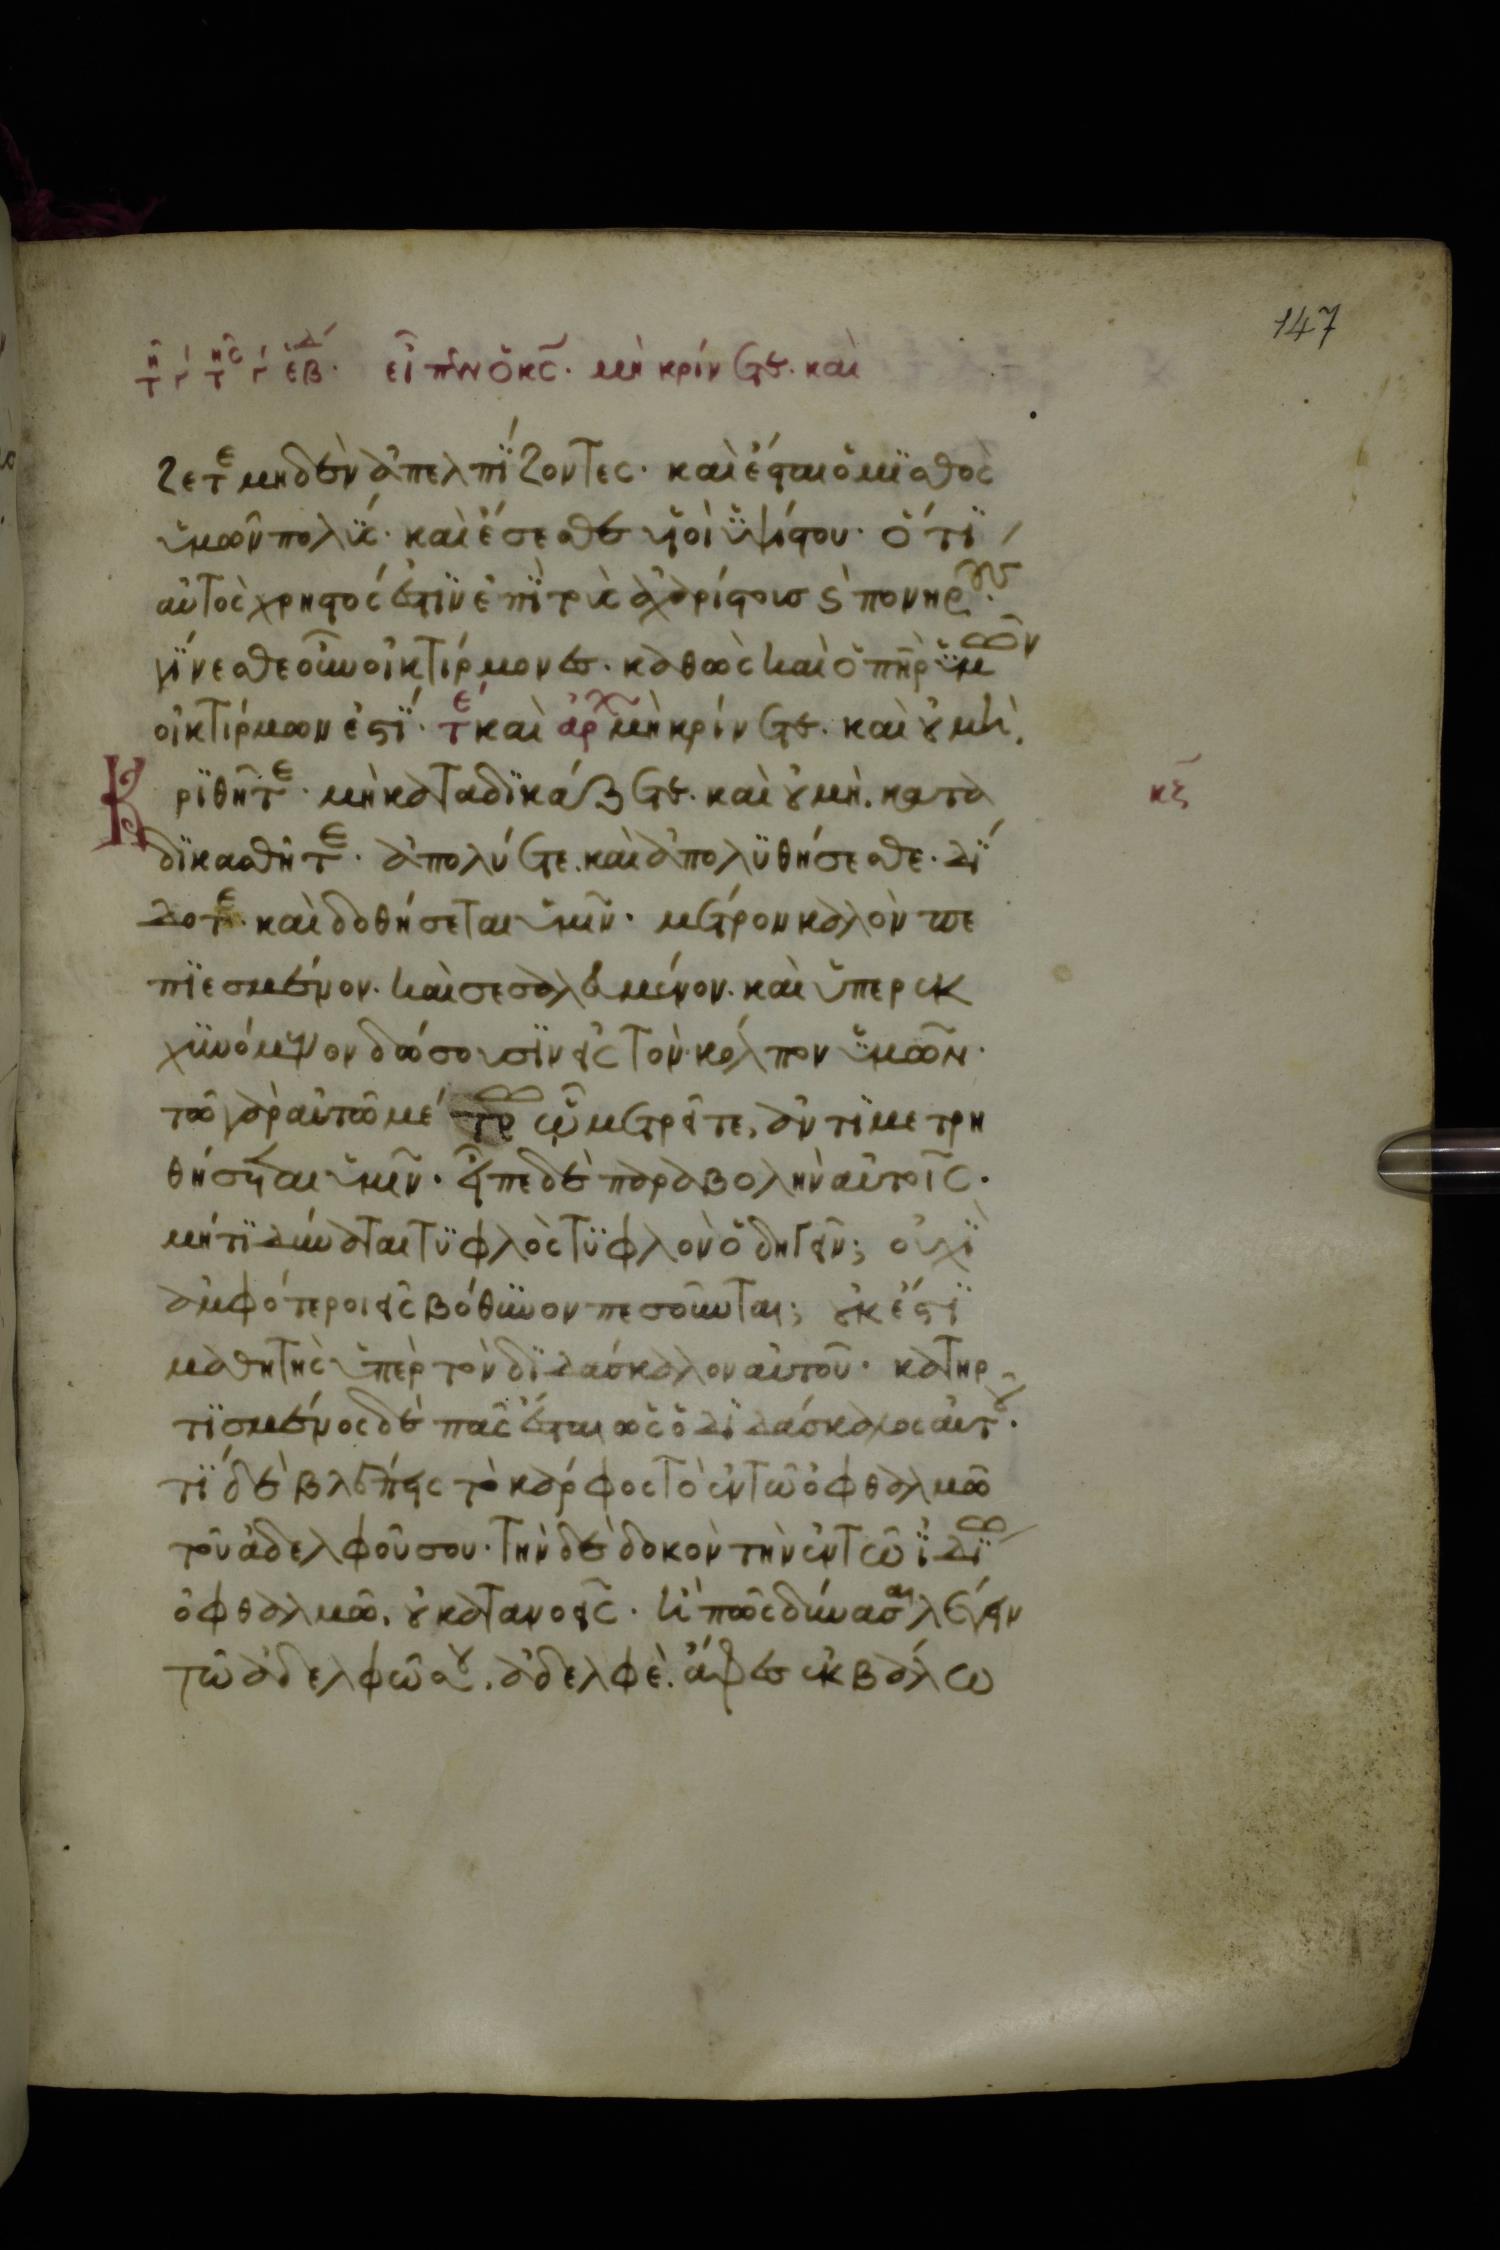 147
τῇ γ τῆς γ ἑβδ. εἶπεν ὁ κς̅. μὴ κρίνετε. καὶ
ζετε μηδὲν ἀπελπίζοντες. καὶ ἔσται ὁ μισθὸς
ὑμῶν πολύς. καὶ ἔσεσθε υἱοὶ ὑψίστου. ὅτι
αὐτὸς χρηστός ἐστιν ἐπὶ τοὺς ἀχαρίστους ϛ πονηρούς.
γίνεσθε οὖν οἰκτίρμονες. καθὼς καὶ ὁ πη̅ρ ὑμῶν
οἰκτίρμων ἐστί. τε καὶ ἀρχ μὴ κρίνετε. καὶ οὐ μὴ.
κριθῆτε. μὴ καταδικάζετε. καὶ οὐ μὴ. κατα
κξ
δικασθῆτε. ἀπολύετε. καὶ ἀπολυθήσεσθε. δί
δοτε. καὶ δοθήσεται ὑμῖν. μέτρον καλὸν πε
πιεσμένον. καὶ σεσαλευμένον. καὶ ὑπερεκ
χυνόμενον δώσουσιν εἰς τὸν κόλπον ὑμῶν.
τῶ γὰρ αὐτῶ μέτρω ὧ μετρεῖτε, ἀντιμετρη
θήσεται ὑμῖν. εἶπε δὲ παραβολὴν αὐτοῖς.
μήτι δύναται τυφλὸς τυφλὸν ὁδηγεῖν; οὐχὶ
ἀμφότεροι εἰς βόθυνον πεσοῦνται; οὐκ ἔστι
μαθητὴς ὑπὲρ τὸν διδάσκαλον αὐτοῦ. κατηρ
τισμένος δὲ πᾶς ἔσται ὡς ὁ διδάσκαλος αὐτοῦ.
τί δὲ βλέπεις τὸ κάρφος τὸ ἐν τῶ ὀφθαλμῶ
τοῦ ἀδελφοῦ σου. τὴν δὲ δοκὸν τὴν ἐν τῶ ἰδίω
ὀφθαλμῶ, οὐ κατανοεῖς. ἢ πῶς δύνασαι λέγειν
τῶ ἀδελφῶ σου. ἀδελφὲ. ἄφες ἐκβάλω